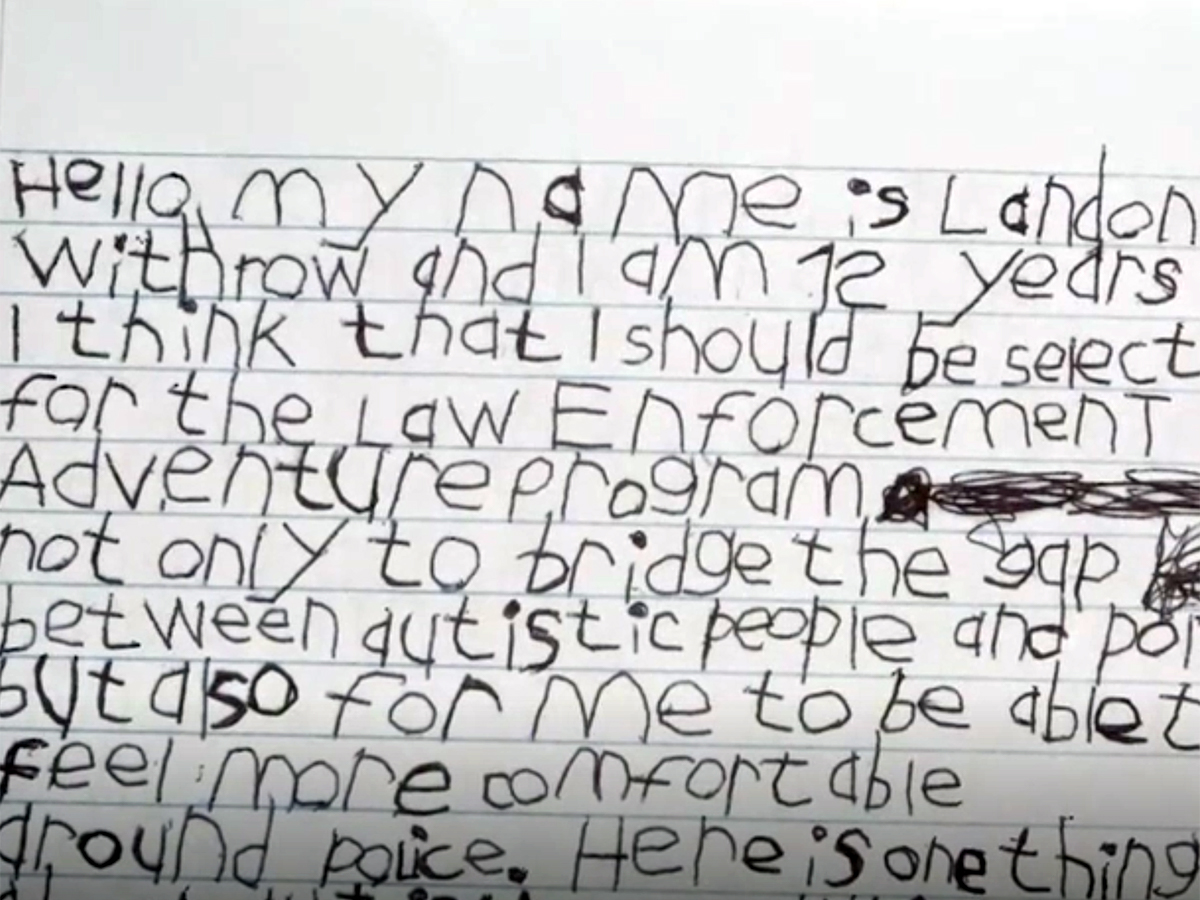 Hello, my name is Landon
Withrow and I am 12 years
I think that I should be select
for the Law Enforcement
Adventure program
not only to bridge the gap
between autistic people and pol
but also for me to be able t
feel more comfortable
around police. Here is one thing